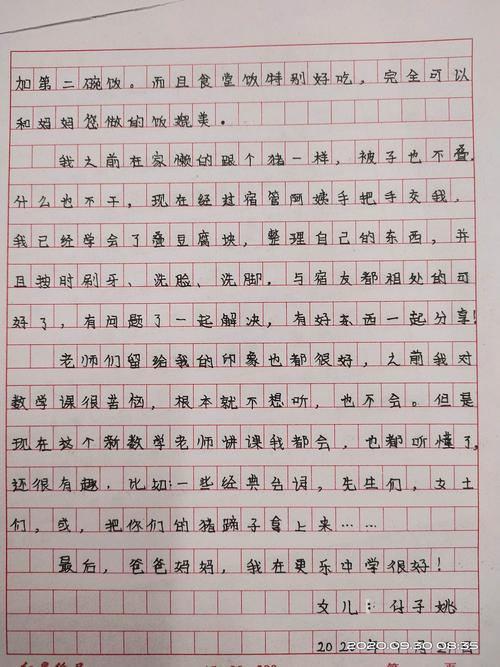 加第二碗饭。而且食堂饭特别好吃，完全可以
和妈妈您做的饭媲美。
我之前在家懒的跟个猪一样，被子也不叠，
什么也不干，现在经过宿管阿姨手把手交我，
我已经学会了叠豆腐块，整理自己的东西，并
且按时刷牙、洗脸、洗脚，与宿友都相处的可
好了，有问题了一起解决，有好东西一起分享！
老师们留给我的印象也都很好，之前我对
数学课很苦恼，根本就不想听，也不会。但是
现在这个新数学老师讲课我都会，也都听懂了，
还很有趣，比如：一些经典台词，先生们，女士
们，或，把你们的猪蹄子拿上来……
最后，爸爸妈妈，我在更乐中学很好！
女儿：付子姚
2020.09.30 08:35